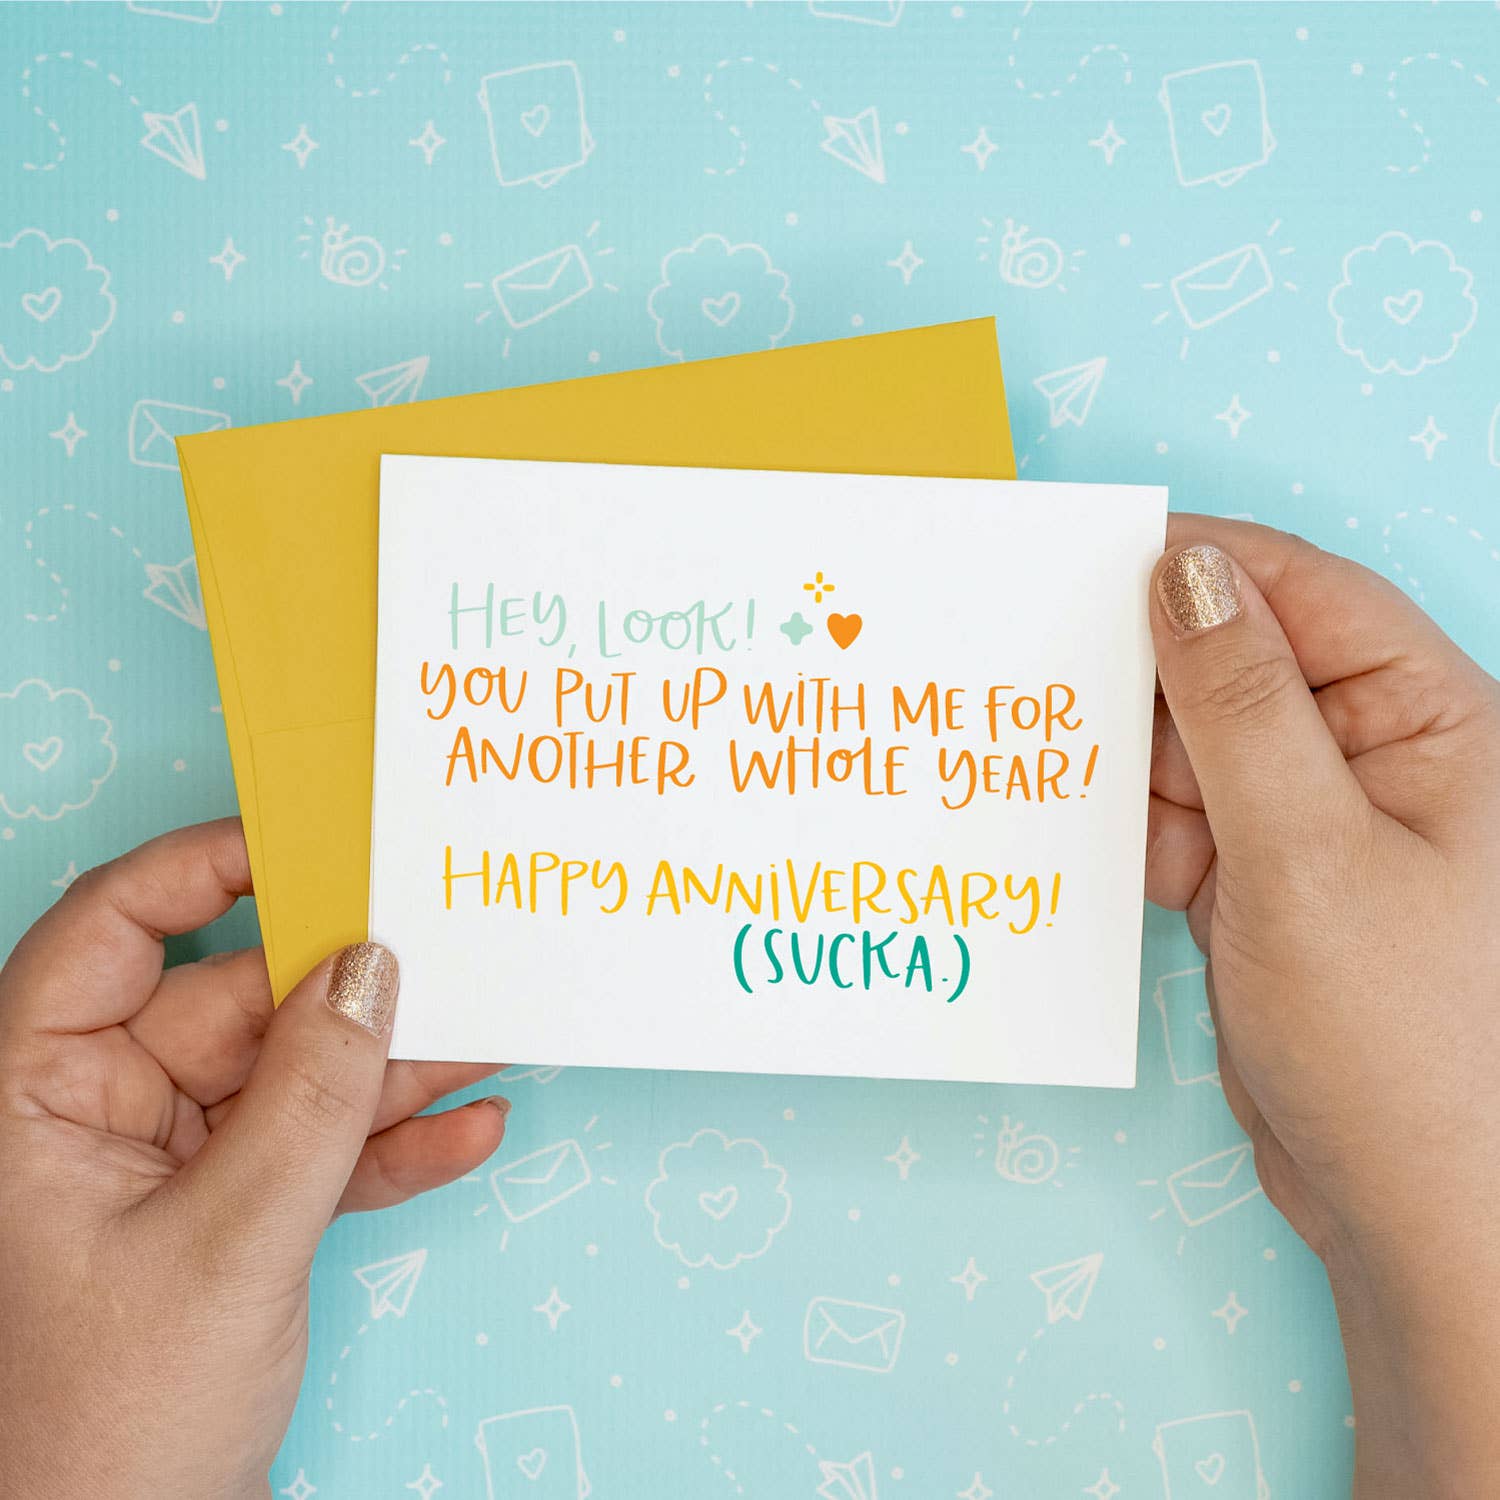 HEY, LOOK!
YOU PUT UP WITH ME FOR
ANOTHER WHOLE YEAR!
HAPPY ANNIVERSARY!
(SUCKA.)